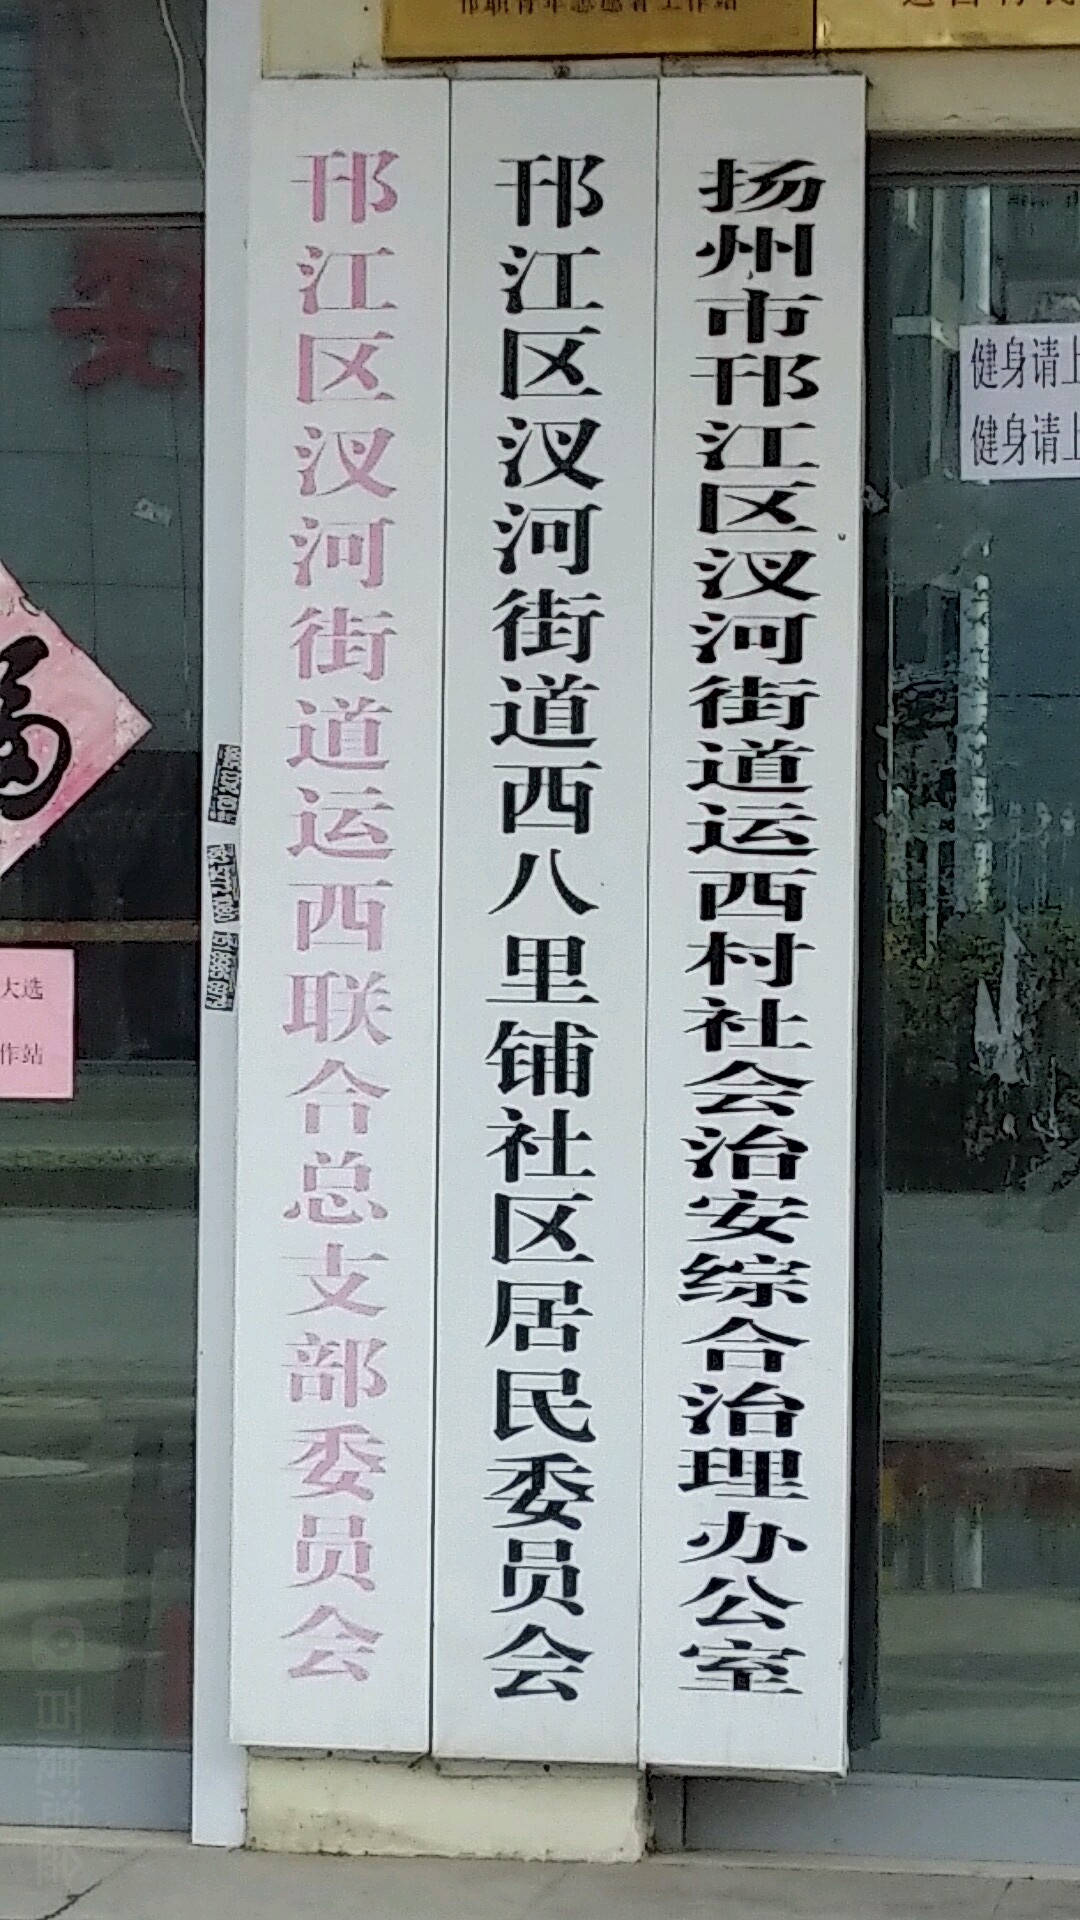 邗江区汊河街道运西联合总支部委员会
邗江区汊河街道西八里铺社区居民委员会
扬州市邗江区汊河街道运西村社会治安综合治理办公室
健身请上
健身请上
大选
作站